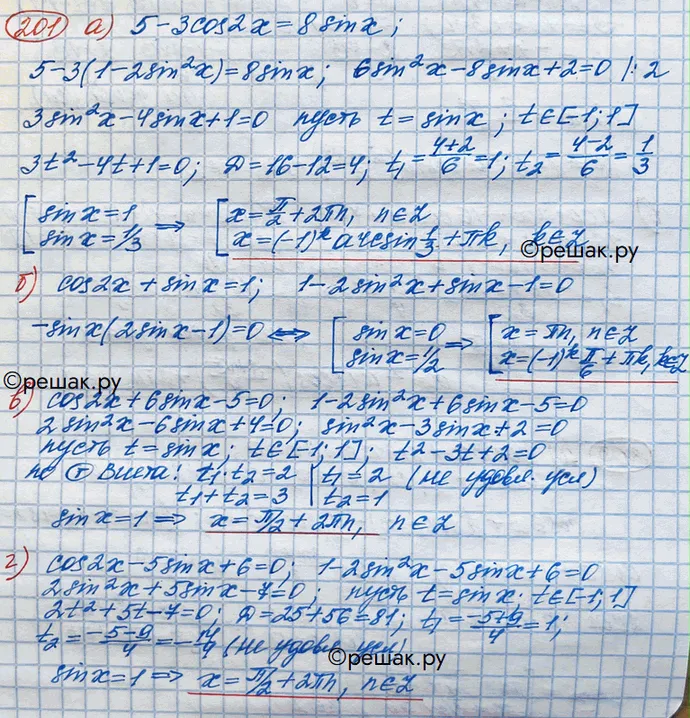 201 а) 5-3cos2x=8sinx;
5-3(1-2sin²x)=8sinx; 6sin²x-8sinx+2=0 |:2
3sin²x-4sinx+1=0 пусть t=sinx; t∈[-1;1]
3t²-4t+1=0; D=16-12=4; t₁=(4+2)/6=1; t₂=(4-2)/6=1/3
[sinx=1 ⇒ [x=π/2+2πn, n∈Z
sinx=1/3 x=(-1)ᵏarcsin1/3+πk, k∈Z
©решак.ру
б) cos2x+sinx=1; 1-2sin²x+sinx-1=0
-sinx(2sinx-1)=0 ⇔ [sinx=0 ⇒ [x=πn, n∈Z
sinx=1/2 x=(-1)ᵏπ/6+πk, k∈Z
©решак.ру
в) cos2x+6sinx-5=0; 1-2sin²x+6sinx-5=0
2sin²x-6sinx+4=0; sin²x-3sinx+2=0
пусть t=sinx; t∈[-1;1]; t²-3t+2=0
по Т Виета: t₁·t₂=2 [t₁=2 (не удовл. усл)
t₁+t₂=3 t₂=1
sinx=1 ⇒ x=π/2+2πn, n∈Z
г) cos2x-5sinx+6=0; 1-2sin²x-5sinx+6=0
2sin²x+5sinx-7=0; пусть t=sinx. t∈[-1;1]
2t²+5t-7=0; D=25+56=81; t₁=(-5+9)/4=1;
t₂=(-5-9)/4=-14/4 (не удовл. усл)
©решак.ру
sinx=1 ⇒ x=π/2+2πn, n∈Z